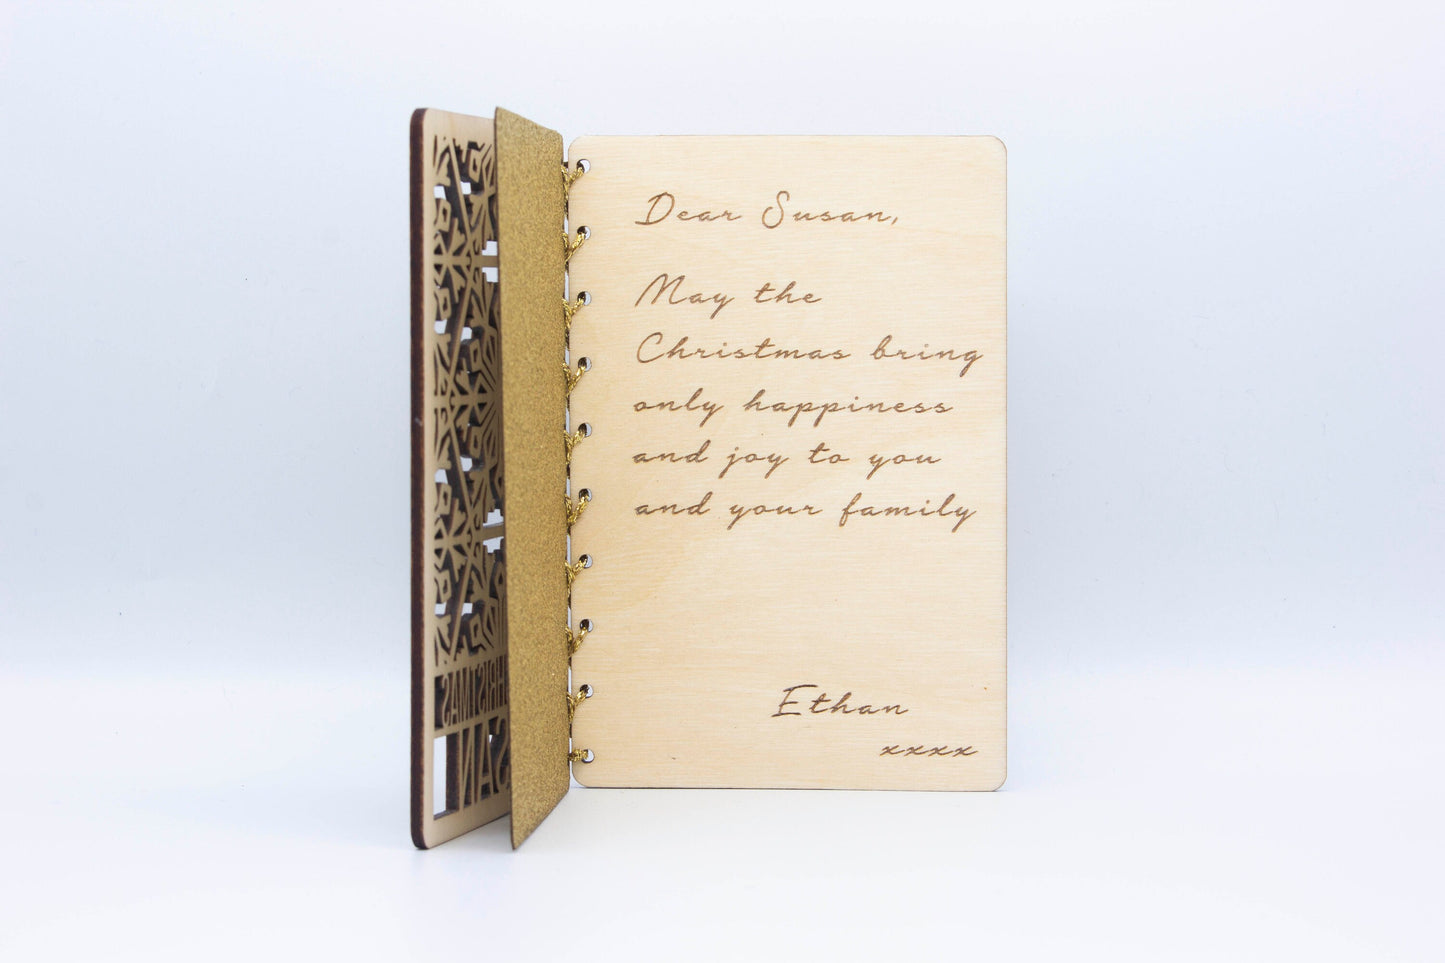 Dear Susan,
May the
Christmas bring
only happiness
and joy to you
and your family
Ethan
xxxx